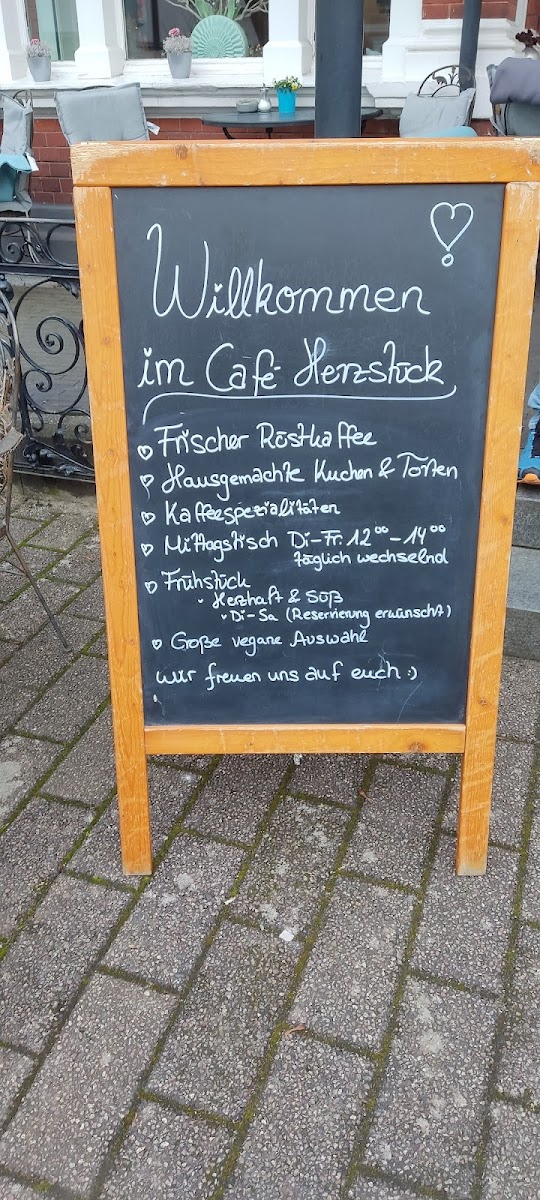 Willkommen
im Café Herzstück
Frischer Röstkaffee
Hausgemachte Kuchen & Torten
Kaffeespezialitäten
Mittagstisch Di-Fr. 12⁰⁰-14⁰⁰
täglich wechselnd
Frühstück
• Herzhaft & Süß
• Di-Sa (Reservierung erwünscht)
Große vegane Auswahl
wir freuen uns auf euch :)